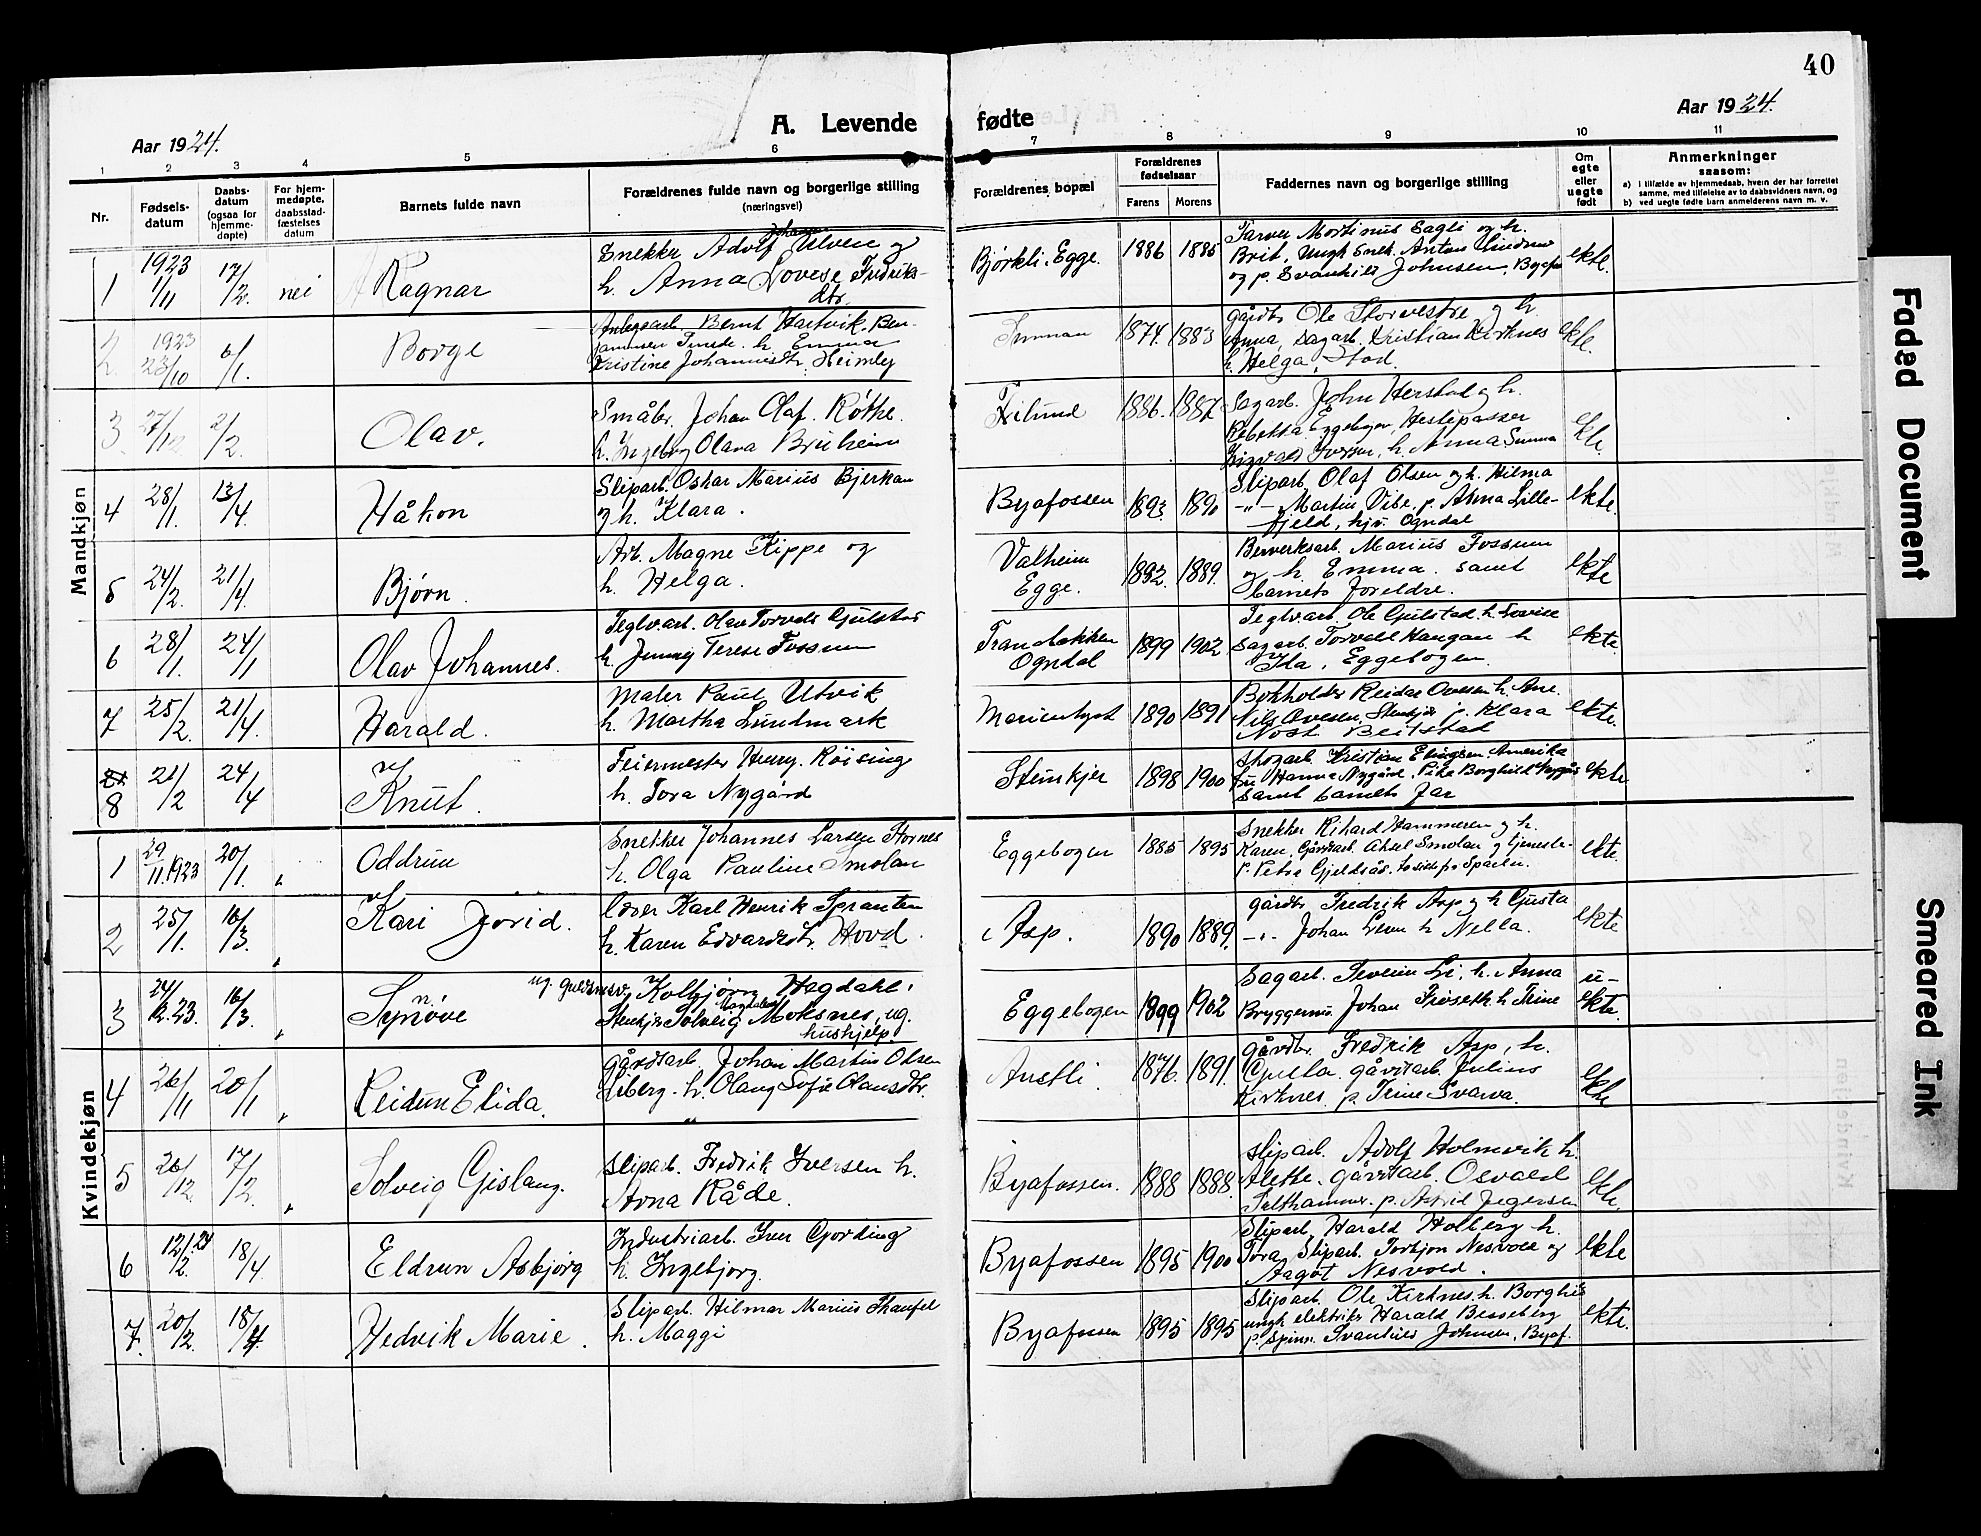 40
Aar 1924.
A. Levende fødte
Aar 1924.
1 2 3 4 5 6 7 8 9 10 11
Nr.
Fødsels-
datum
Daabs-
datum
(ogsaa for
hjemme-
døpte)
For hjem-
medøpte,
daabsstad-
fæstelses
datum
Barnets fulde navn
Forældrenes fulde navn og borgerlige stilling
(næringsvei)
Forældrenes bopæl
Forældrenes
fødselsaar
Farens
Morens
Faddernes navn og borgerlige stilling
Om
egte
eller
uegte
født
Anmerkninger
saasom:
a) i tilfælde av hjemmedaab, hvem der har forrettet
samme, med tilføielse av to daabsvidners navn, og
b) ved uegte fødte barn anmelderens navn m. v.
Mandkjøn
1 1923 1/11 17/2. nei Ragnar
Snekker Adolf Johan Ulven og
h. Anna Lovese Fredriks-
dtr.
Bjørkli, Egge. 1886 1885
Garver Mortinus Sagli og h.
Brit, Ungk. Snek. Anton
og p. Svanhild Johnsen, Byafos
ekte.
2 1923 23/10 6/1. Borge
Anlegsarb. Bernt Hartvik Ben-
jaminsen h. Emma
Kristine Johannesdtr. Heimly
1874. 1883
gårdbr Ole Storvestre og h.
Anna, Sagarb. Kristian Kirknes
h. Helga, Stod.
ekte.
3 27/12 2/2. Olav.
Småbr. Johan Olaf Røthe.
h. Ingeborg Olava Bruheim
1886. 1887.
Sagarb. John Herstad og h.
Rebekka Eggebogen, Hestepasser
Iversen, h. Anna
ekte.
4 28/1. 13/4. Håkon
Sliparb. Oskar Marius Bjerkan
og h. Klara.
Byafossen 1893. 1890
Sliparb. Olaf Olsen og h. Hilma
-"- Martin Vibe, p. Anna Lille-
fjeld, hjv. Ogndal
ekte.
5 24/2. 21/4. Bjørn.
Arb. Magne Kippe og
h. Helga.
Valheim
Egge. 1892. 1889.
Marius Fossum
og h. Emma. samt
barnets foreldre.
ekte
6 28/1. 24/1 Olav Johannes.
Teglv.arb. Olav Torvald Gjulstad
h. Jenny Terese Fossum
Tranabakken
Ogndal 1899 1902
Teglv.arb. Ole Gjulstad h. Lovise
Sagarb. Torvald Haugan h
Ida, Eggebogen.
ekte
7 25/2. 21/4. Harald.
Maler Paul Utvik
h. Martha Lundmark
Marienlyst 1890 1891
Bokholder Reidar Ovesen h. Ane.
Nils Ovesen, Stenkjær p. Klara
Nost Beitstad
ekte.
8 21/2 24/4 Knut.
Feiermester Henry Røising
h. Tora Nygård
Steinkjer 1898 1900
Skogarb. Kristian Elingsen. Amerika
fru Hanna Nygård, Pike Borghild Nygård
samt barnets far
ekte
Kvindekjøn
1 29/11.1923 20/1. " Oddrun
Snekker Johannes Larsen Stornes
h. Olga Pauline Smolan
Eggebogen 1885 1895
Snekker Rikard Hammeren og h.
Karen, Gårdarb. Aksel Smolan og tjeneste-
p. Petra Gjeldsås.
ekte.
2 25/1. 16/3. " Kari Jorid.
Karl Henrik Spranten
h. Karen Edvardsdtr. Hovd.
Asp. 1890 1889.
gårdbr Fredrik Asp og h Gusta
-"- Johan Lein h Nella.
ekte
3 24/12.23. 16/3. " Synnøve
ug. guldsmsv. Kolbjørn Hegdahl,
Stenkjer Solveig Magdalena Moksnes, ug.
hushjelp.
Eggebogen 1899 1902
Sagarb. Severin Li, h. Anna
Bryggerms. Johan Frøseth h. Trine
u-
ekte.
4 26/11 20/1 " Reidun Elida.
gårdarb. Johan Martin Olsen
h. Olaug Sofie Olausdtr.
Austli. 1876. 1891.
gårdbr. Fredrik Asp, h.
Gusta. gårdarb. Julius
Kirknes. p. Trine Svarva.
ekte
5 26/12. 17/2. " Solveig Gislaug.
Sliparb. Fredrik Iversen h.
Anna Råde.
Byafossen. 1888 1888.
Sliparb. Adolf Holmvik h.
Alethe. gårdarb. Osvald
Salthammer. p. Astrid Jegersen
ekte.
6 12/2. 24 18/4 Eldrun Asbjørg
Industriarb. Iver Gjording
h. Ingebjorg.
Byafossen 1895 1900
Sliparb. Harald Holberg h.
Tora, Sliparb. Torbjørn Nesvold og
Aagot Nesvold.
ekte
7. 20/2. 18/4. Hedvik Marie.
Sliparb. Hilmar Marius Skaufel
h. Maggi
Byafossen 1895 1895
Sliparb. Ole Kirknes. h. Borghild
ungk. elektriker Harald Besseberg
p. spinn. Svanhild Johnsen, Byaf.
ekte.
Faded Document
Smeared Ink